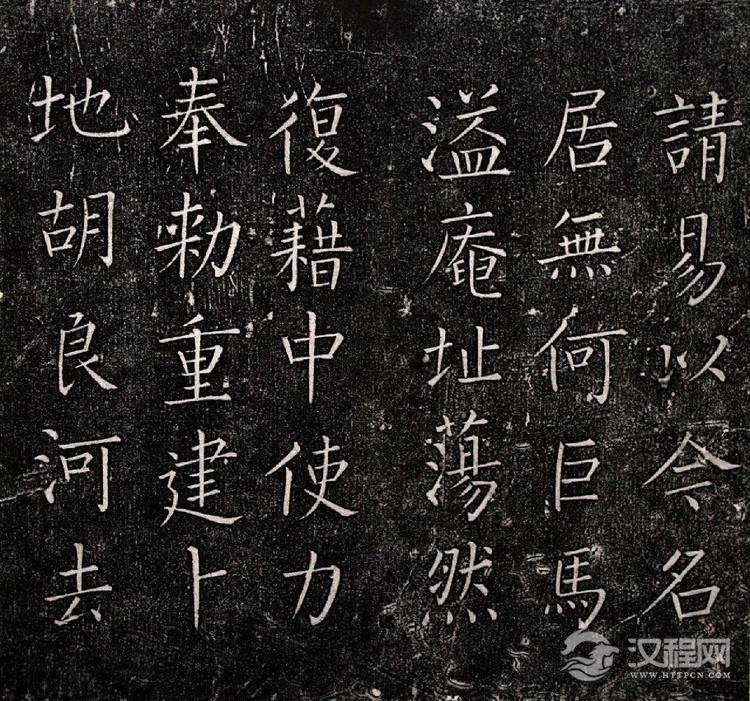 請易以今名
居無何巨馬
溢庵址蕩然
復藉中使力
奉勅重建卜
地胡良河去
汉程网
WWW.HTTPCN.COM